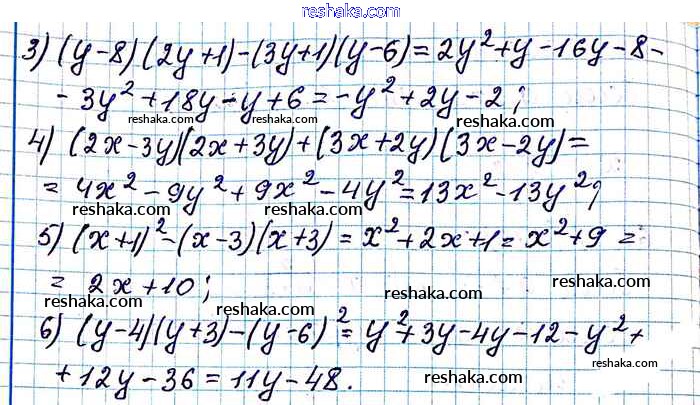 reshaka.com
3) (y-8)(2y+1)-(3y+1)(y-6)=2y²+y-16y-8-
-3y²+18y-y+6=-y²+2y-2;
reshaka.com
4) (2x-3y)(2x+3y)+(3x+2y)(3x-2y)=
=4x²-9y²+9x²-4y²=13x²-13y²;
reshaka.com reshaka.com
5) (x+1)²-(x-3)(x+3)=x²+2x+1=x²+9=
reshaka.com reshaka.com
=2x+10;
6) (y-4)(y+3)-(y-6)²=y²+3y-4y-12-y²+
+12y-36=11y-48.
reshaka.com reshaka.com